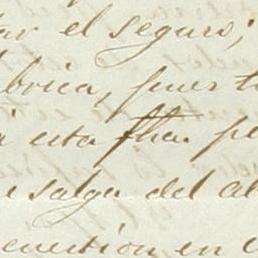 ar el seguro;
brica, pues t
a esta fha. pe
e salga del al
ecuestion en c